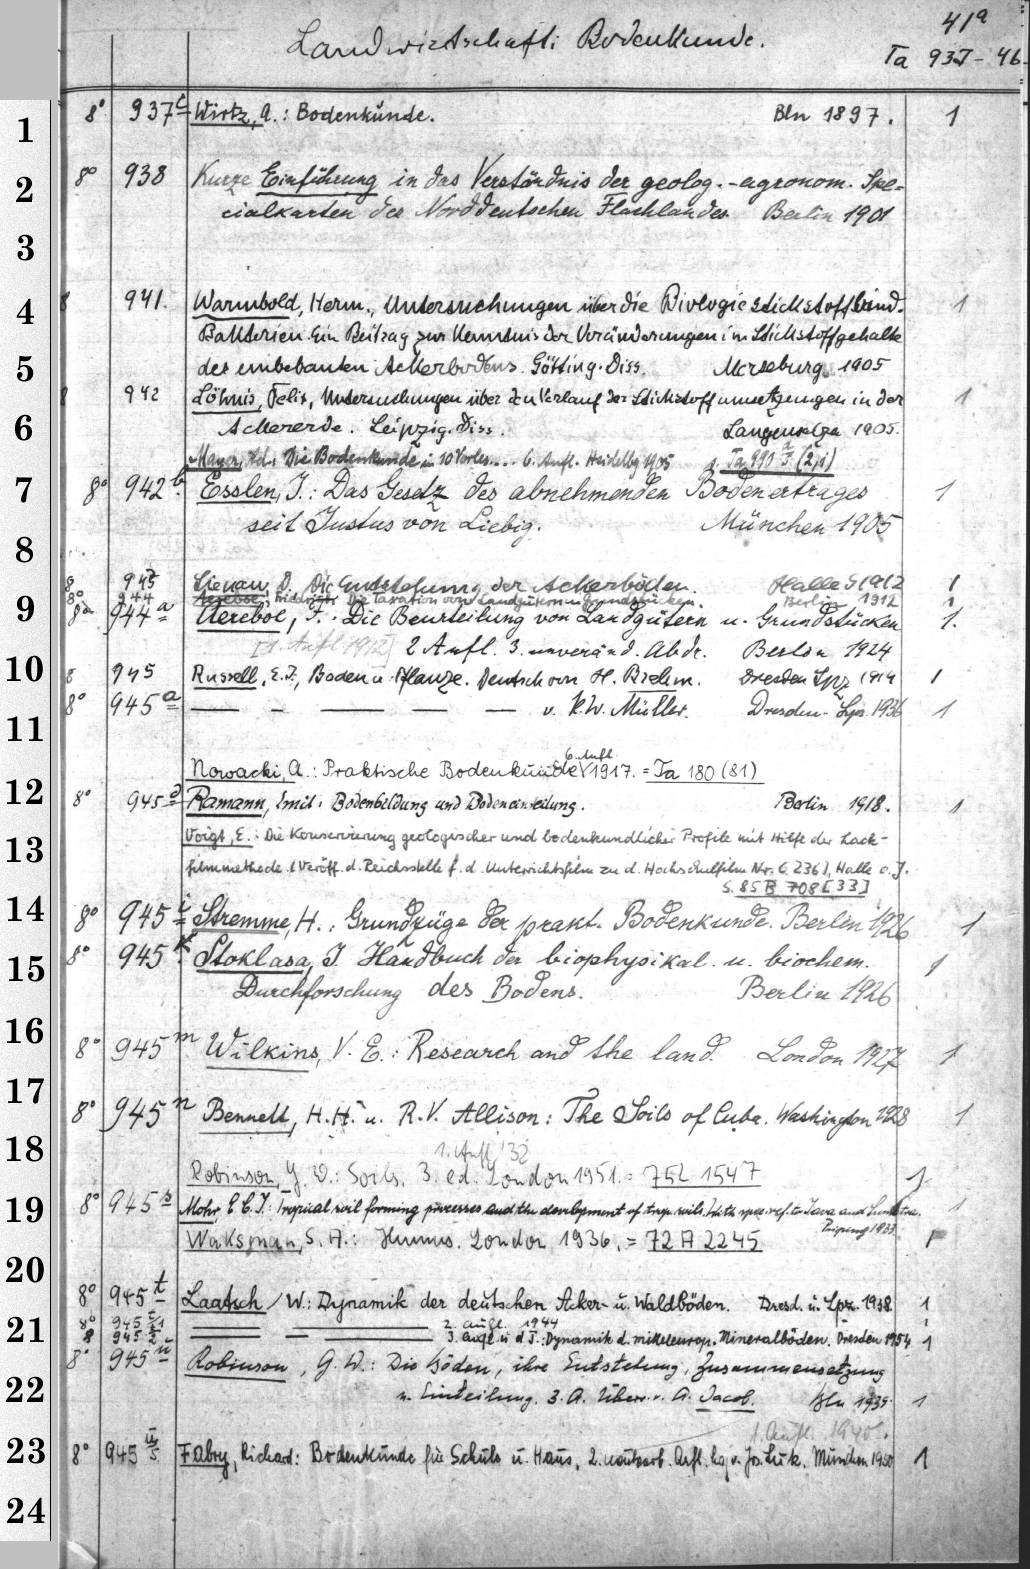 41a
Landwirtschaft: Bodenkunde.
Ta 937-46
1
8° 937c Wirtz, A.: Bodenkunde. Bln 1897. 1
2
8° 938 Kurze Einführung in das Verständnis der geolog.-agronom. Spe=
cialkarten des Norddeutschen Flachlandes Berlin 1901
3
4
8 941. Warmbold, Herm., Untersuchungen über die Biologie stickstoffbind. 1
Bakterien. Ein Beitrag zur Kenntnis der Veränderungen im Stickstoffgehalte
5
des unbebauten Ackerbodens. Götting. Diss. Merseburg 1905
8 942 Löhnis, Felix, Untersuchungen über den Verlauf der Stickstoffumsetzungen in der 1
6
Ackererde. Leipzig. Diss. Langensalza 1905.
Mayer, Ad., Die Bodenkunde in 10 Vorles.... 6. Aufl. Heidelbg 1905 s. Ta 990 (2,1)
7
8° 942b. Esslen, J.: Das Gesetz des abnehmenden Bodenertrages 1
seit Justus von Liebig. München 1905
8
8 943 Lienau, D. Die Entstehung der Ackerböden. Halle S 1912 1
8° 944 Aereboe, Friedrich: Die Taxation von Landgütern u. Grundstücken. Berlin 1912 1
9
8° 944a Aereboe, F.: Die Beurteilung von Landgütern u. Grundstücken 1.
[1. Aufl 1912] 2 Aufl. 3. unveränd. Abdr. Berlin 1924
10
8 945 Russell, E.J., Boden u. Pflanze. Deutsch von H. Brehm. Dresden Lpz 1914 1
8° 945a — - — — — v. K.W. Müller. Dresden-Lps. 1936 1
11
Nowacki, A.: Praktische Bodenkunde 6. Aufl. 1917. = Ta 180 (81)
12
8° 945d Ramann, Emil: Bodenbildung und Bodeneinteilung. Berlin 1918. 1
Voigt, E.: Die Konservierung geologischer und bodenkundlicher Profile mit Hilfe der Lack-
13
filmmethode (Veröff. d. Reichsstelle f. d. Unterrichtsfilm zu d. Hochschulfilm Nr. C 236), Halle o. J.
S. 85 B 708 [33]
14
8° 945i Stremme, H.: Grundzüge der prakt. Bodenkunde. Berlin 1926 1
15
8° 945k. Stoklasa, J. Handbuch der biophysikal. u. biochem. 1
Durchforschung des Bodens. Berlin 1926
16
8° 945m Wilkins, V. E.: Research and the land. London 1927 1
17
8° 945n Bennett, H.H. u. R.V. Allison: The Soils of Cuba. Washington 1928 1
18
1. Aufl. '32
Robinson, G. W.: Soils. 3. ed. London 1951. = 75L 1547 1
19
8° 945s Mohr, E C. J.: Tropical soil forming processes and the development of trop. soils. With spec. ref. to Java and Sumatra. 1
Peiping 1933.
Waksman, S. A.: Humus. London 1936. = 72 A 2245 1
20
8° 945t Laatsch, W.: Dynamik der deutschen Acker- u. Waldböden. Dresd. u. Lpz. 1938. 1
8° 945 — — — 2. Aufl. 1944 1
21
8 945 3. Aufl. u d T.: Dynamik d. mitteleurop. Mineralböden. Dresden 1954 1
8° 945u Robinson, G. W.: Die Böden, ihre Entstehung, Zusammensetzung
22
u. Einteilung. 3. A. Übers. v. A. Jacob. Bln 1939. 1
1. Aufl. 1948.
23
8° 945 Fabry, Richard: Bodenkunde für Schule u. Haus. 2. neubearb. Aufl. hg. v. Jos. Luk. München 1950 1
24